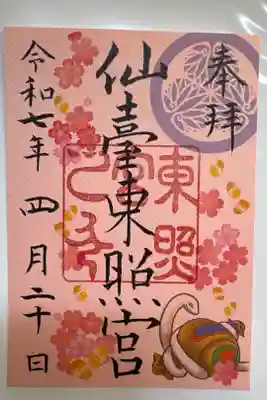 奉拝
仙臺東照宮
東照
乙巳年
令和七年 四月二十日